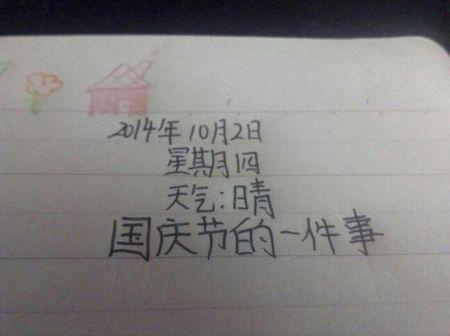 2014年10月2日
星期四
天气:晴
国庆节的一件事